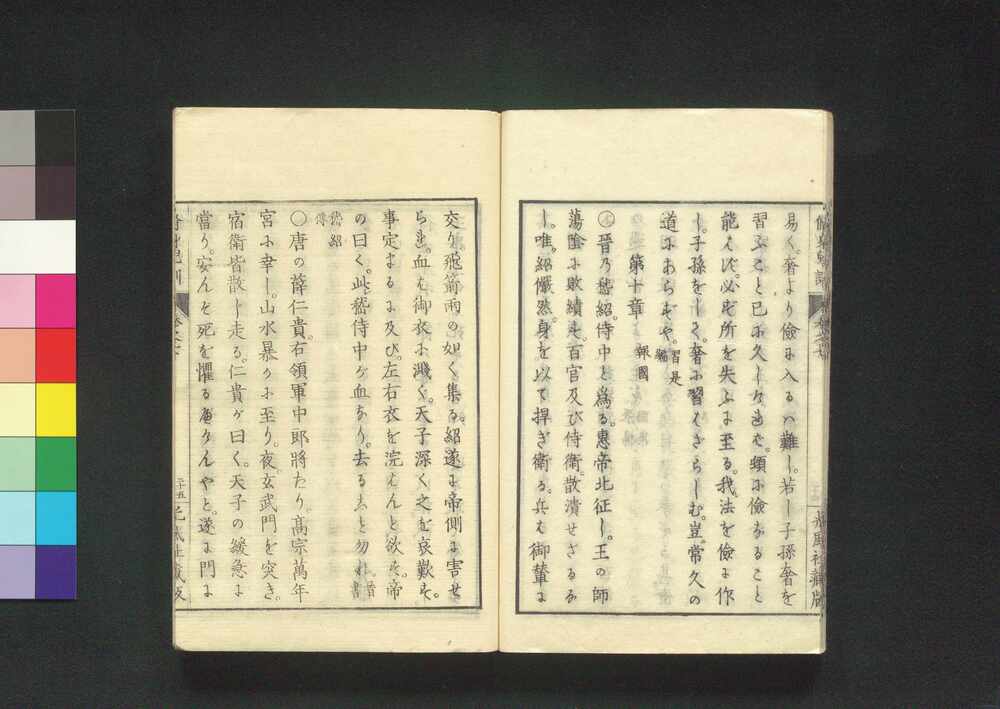 易く。奢より儉に入るハ難し。若し子孫奢を
習ふこと已に久しければ。頓に儉なること
能はず。必ず所を失ふに至る。我法を儉に作
し。子孫をして。奢に習はざらしむ。豈。常久の
道にあらずや。習是編
第十章 報國
晉の嵇紹侍中と爲る。惠帝北征し。王の師
蕩陰に敗績す。百官及び侍衛。散潰せざるな
し。唯。紹儼然。身を以て捍ぎ衛る。兵も御輦に
交り。飛箭雨の如く集る。紹遂に帝側に害せ
らる。血も御衣に濺ぐ。天子深く之を哀歎す。
事定まるに及び。左右衣を浣はんと欲す。帝
の曰く。此。嵇侍中が血なり。去ること勿れ 晉書
嵇紹傳
○唐の薛仁貴。右領軍中郎將たり。高宗萬年
宮に幸し。山水暴かに至り。夜。玄武門を突き。
宿衛皆散じ走る。仁貴が曰く。天子の緩急に
當り。安んぞ死を懼るべけんやと。遂に門に
二十五